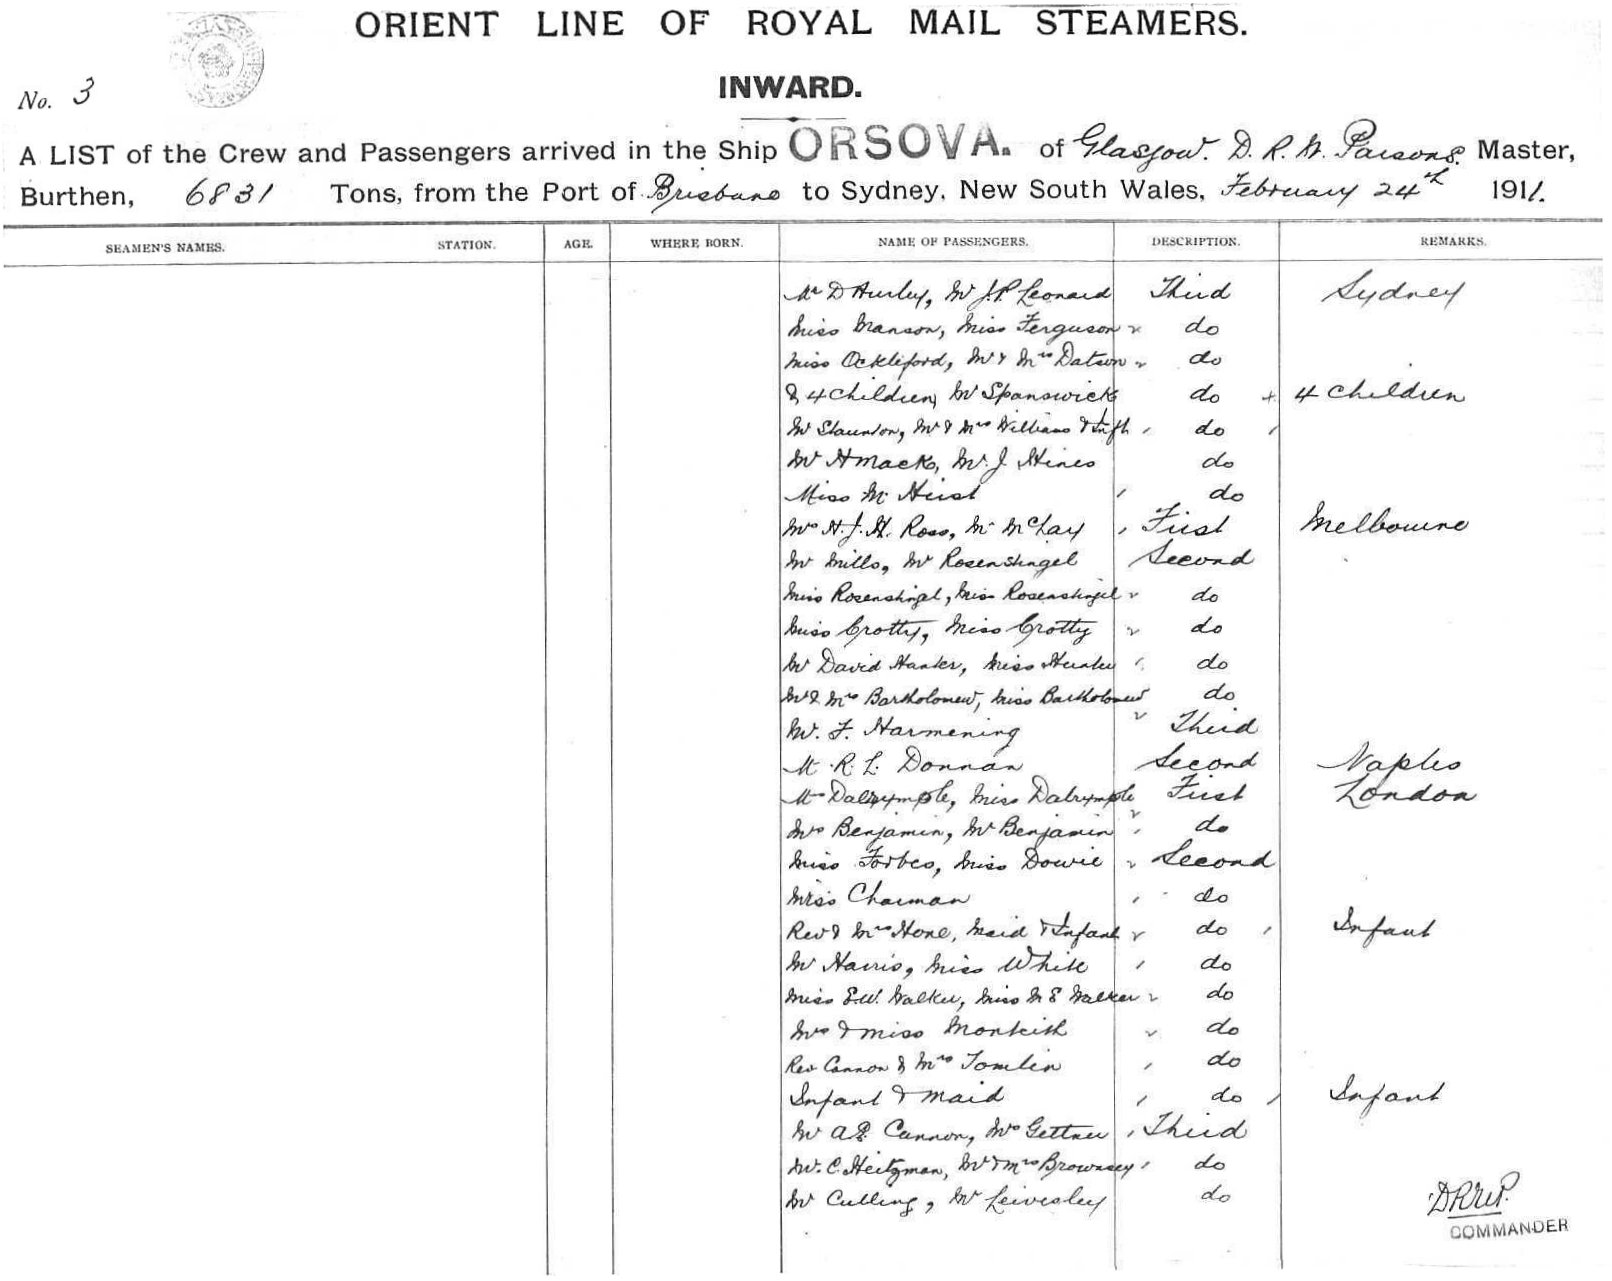 ORIENT LINE OF ROYAL MAIL STEAMERS.
No. 3
INWARD.
A LIST of the Crew and Passengers arrived in the Ship ORSOVA. of Glasgow. D. R. W. Parsons. Master,
Burthen, 6831 Tons, from the Port of Brisbane to Sydney, New South Wales, February 24th 1911.
SEAMEN'S NAMES. STATION. AGE. WHERE BORN. NAME OF PASSENGERS. DESCRIPTION. REMARKS.
Mr D Hurley, Mr J.P. Leonard Third Sydney
Miss Manson, Miss Ferguson do
Miss Ockleford, Mr & Mrs Datson do
& 4 Children, Mr Spanswick do + 4 Children
Mr Staunton, Mr & Mrs Williams & Inft do
Mr H Mack, Mr. J. Hines do
Miss M. Hirst do
Mrs H. J. H. Ross, Mr McLay First Melbourne
Mr Mills, Mr Rosenstingel Second
Miss Rosenstingel, Miss Rosenstingel do
Miss Crotty, Miss Crotty do
Mr David Hunter, Miss Hunter do
Mr & Mrs Bartholomew, Miss Bartholomew do
Mr. F. Harmening Third
Mr R. L. Donnan Second Naples
Dalrymple, Miss Dalrymple First London
Mrs Benjamin, Mr Benjamin do
Miss Forbes, Miss Dowie Second
Miss Charman do
Rev & Mrs Hone, Maid & Infant do Infant
Mr Harris, Miss White do
Miss E.W. Walker, Miss M E Walker do
Mrs & Miss Monteith do
Rev Cannon & Mrs Tomlin do
Infant & Maid do Infant
Mr A.E. Cannon, Gettner Third
Mr. C. Heitzman, Mr & Mrs Brownsey do
Mr Culling, Mr Leivesley do
DRWP.
COMMANDER